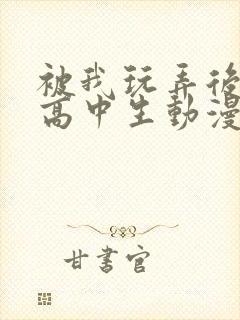 被我玩弄後
高中生動漫
甘書官